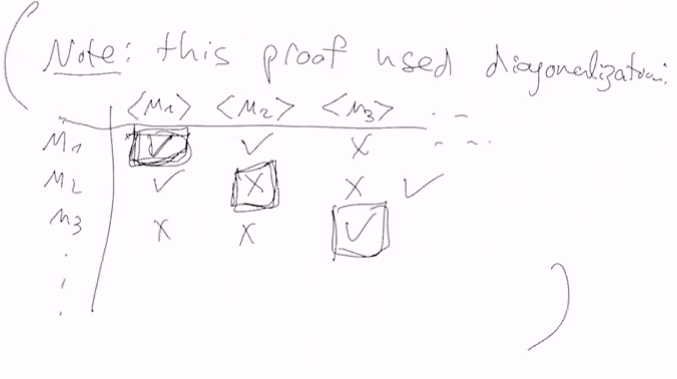 (Note: this proof used diagonalization:
<M1> <M2> <M3> . . .
M1 ✓ ✓ X . . .
M2 ✓ X X ✓
M3 X X ✓
⋮
)